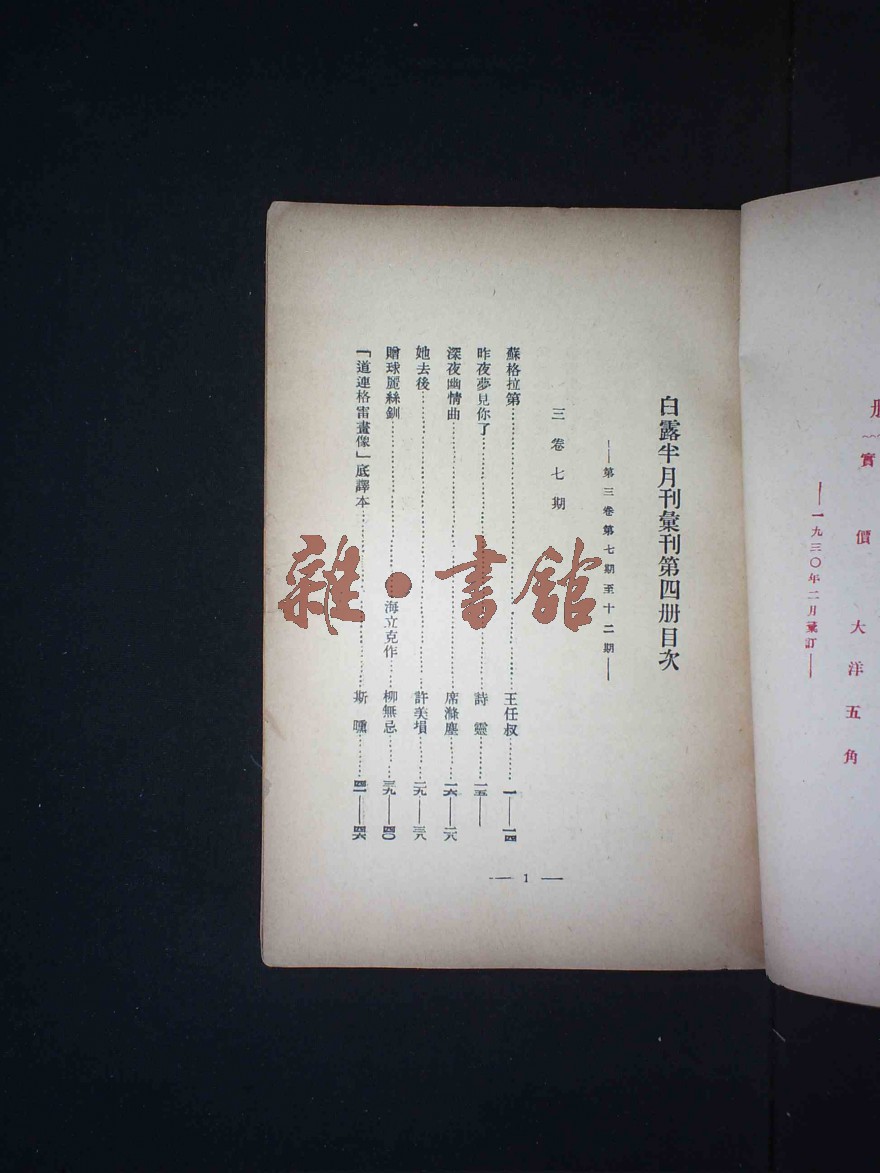 册
實價大洋五角
——一九三〇年二月彙訂——
白露半月刊彙刊第四册目次
——第三卷第七期至十二期——
三卷七期
蘇格拉第……王任叔……一——一四
昨夜夢見你了……詩靈……一五——
深夜幽情曲……席滌塵……一六——二八
她去後……許美塤……二九——三八
贈球麗絲釧……海立克作……柳無忌……三九——四〇
「道連格雷畫像」底譯本……斯曛……四一——四六
— 1 —
雜·書館